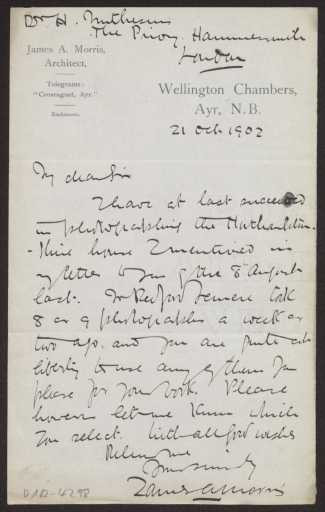 Dr H. Muthesius
The Priory, Hammersmith
London
James A. Morris,
Architect,
Telegrams:
"Consregnel, Ayr."
Enclosures.
Wellington Chambers,
Ayr, N.B.
21 Oct 1902
My dear Sir
I have at last succeeded
in photographing the
house I mentioned in
my letter to you of the 8 August
last. Mr Bedford Lemere took
8 or 9 photographs a week or
two ago. and you are quite at
liberty to use any of them you
please for your book. Please
however let me know which
you select. With all good wishes
Believe me
Yours sincerely
James A Morris